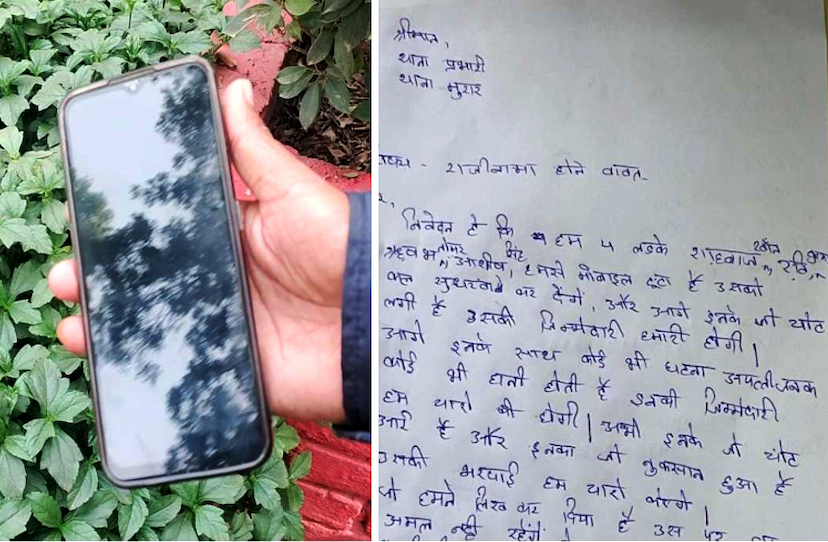 श्रीमान,
थाना प्रभारी
थाना मुरार
विषय - राजीनामा होने वावत
निवेदन है कि हम 4 लडके शाहवाज खाँन रवि
ऋषभ तोमर आशीष, हमसे मोबाइल टूटा है उसको
कल सुधरवा कर देंगे, और आगे इनके जो चोट
लगी है उसकी जिम्मेदारी हमारी होगी।
आगे इनके साथ कोई भी घटना अपत्तीजनक
कोई भी हानी होती है इनकी जिम्मेदारी
हम चारो की होगी। अभी इनके जो चोट
आई है और इनका जो नुकसान हुआ है
उसकी भरपाई हम चारो करेगे।
जो हमने लिख कर दिया है उस पर
अमल नही रहेंगे